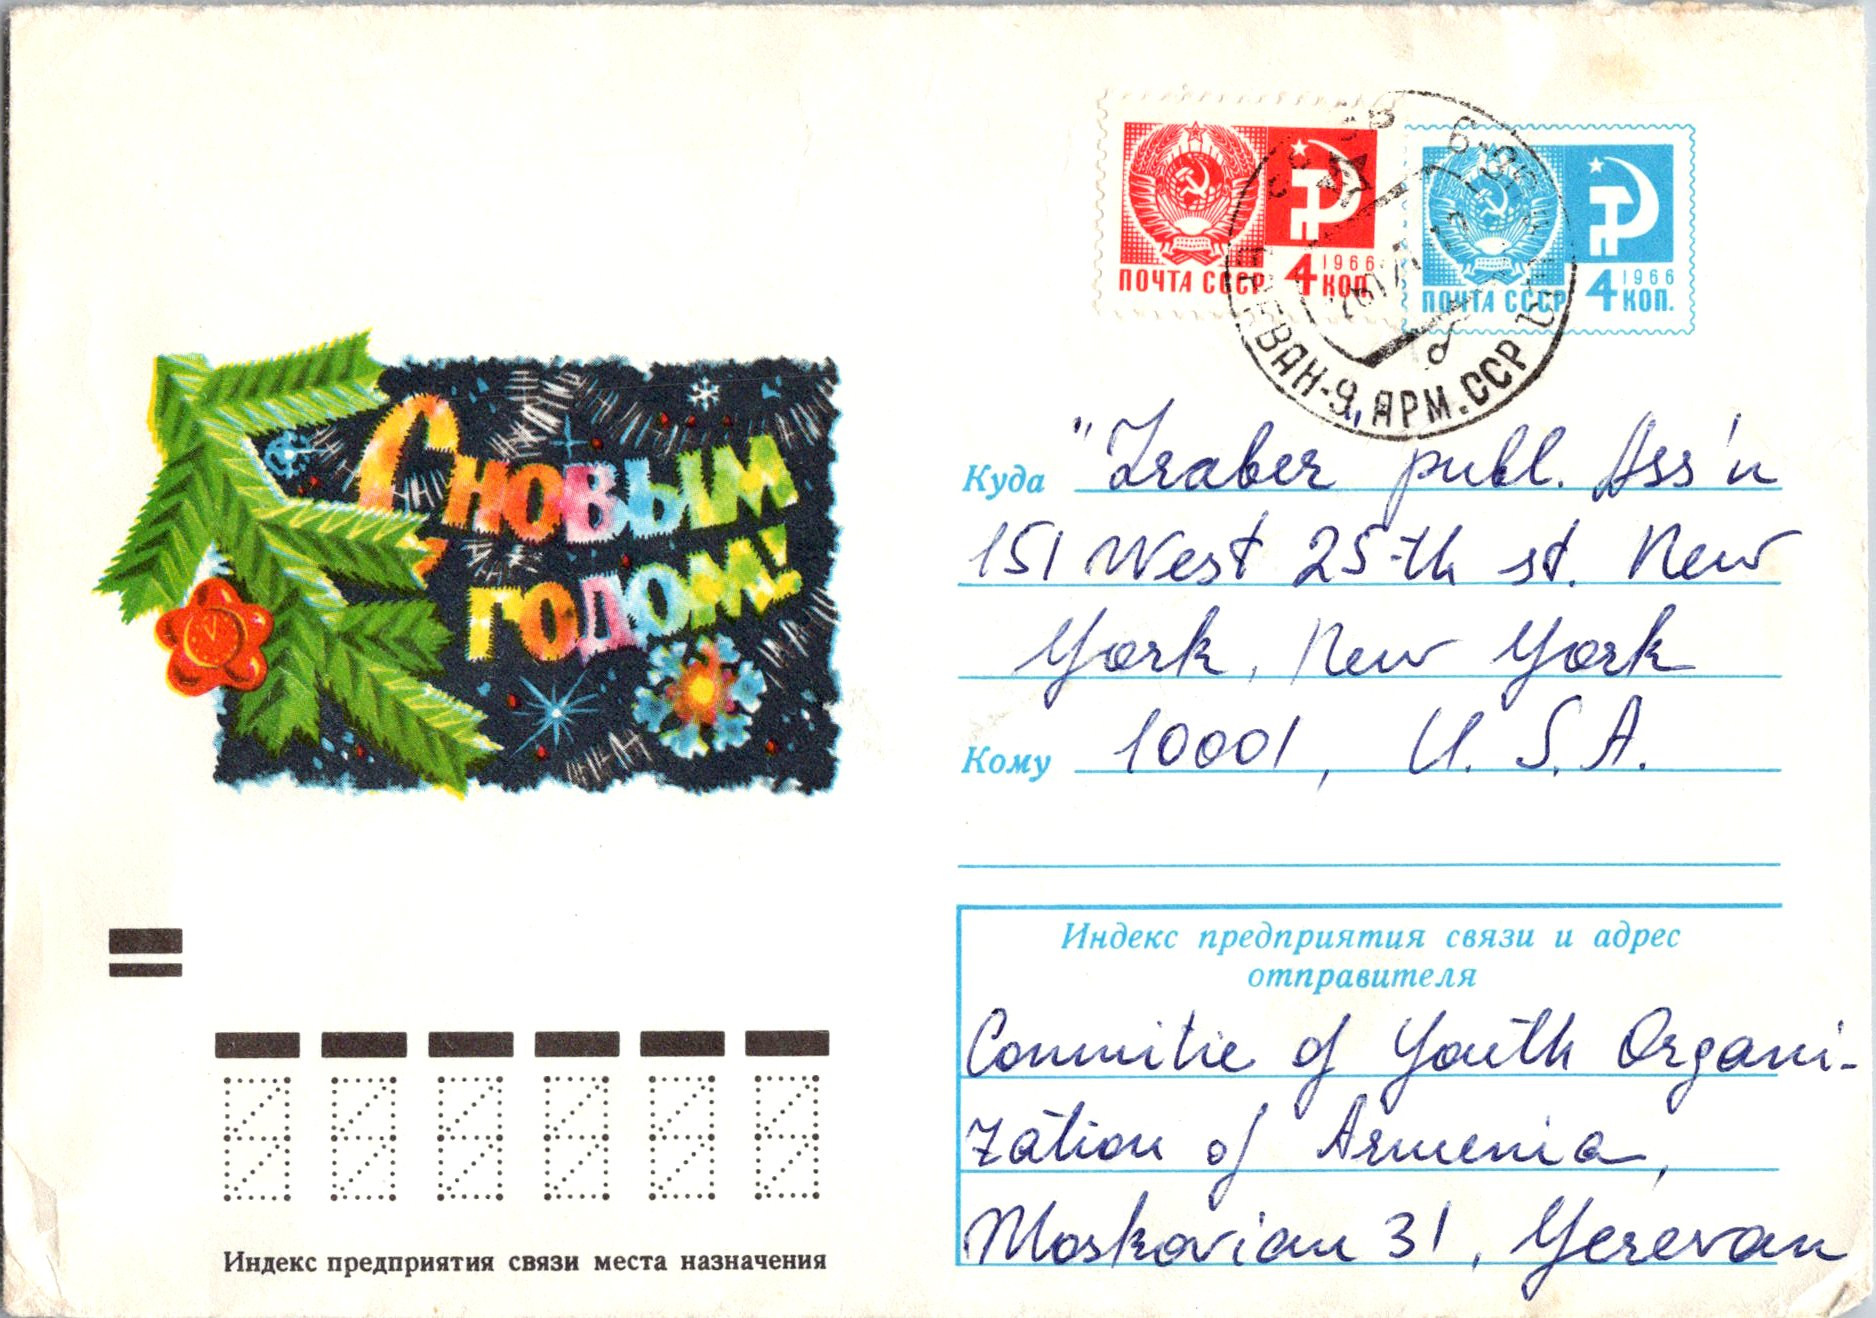 ПОЧТА СССР 4 1966 КОП.
ПОЧТА СССР 4 1966 КОП.
ЕРЕВАН-9, АРМ. ССР
С новым
годом!
Куда "Zraber publ. Ass'n
151 West 25-th st. New
York, New York
Кому 10001, U. S. A.
Индекс предприятия связи и адрес
отправителя
Committie of Youth Organi-
zation of Armenia,
Moskovian 31, Yerevan
Индекс предприятия связи места назначения